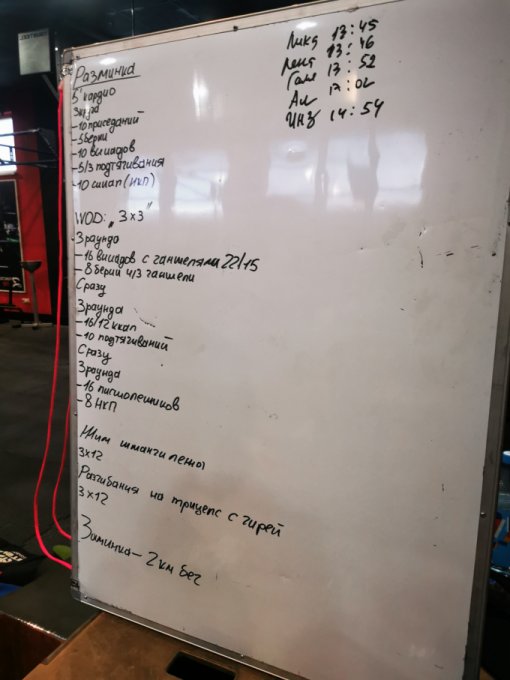 Разминка
5' кардио
3 круга
-10 приседаний
-5 берпи
-10 выпадов
-5/3 подтягивания
-10 ситап (НКП)
WOD: „3х3"
3 раунда
-16 выпадов с гантелями 22/15
-8 берпи ч/з гантели
Сразу
3 раунда
-16/12 ккал
-10 подтягиваний
Сразу
3 раунда
-16 пистолетиков
-8 НКП
Жим штанги лежа
3х12
Разгибания на трицепс с гирей
3х12
Заминка - 2 км бег
13:45
13:46
13:52
14:54